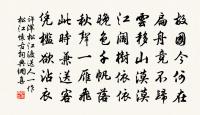 故國今何在
扁舟竟不歸
雲移山漠漠
江闊樹依依
晚色千帆落
秋聲一雁飛
此時兼送客
憑檻欲沾衣
許渾松江渡送人一作
松江懷古詞典網喜